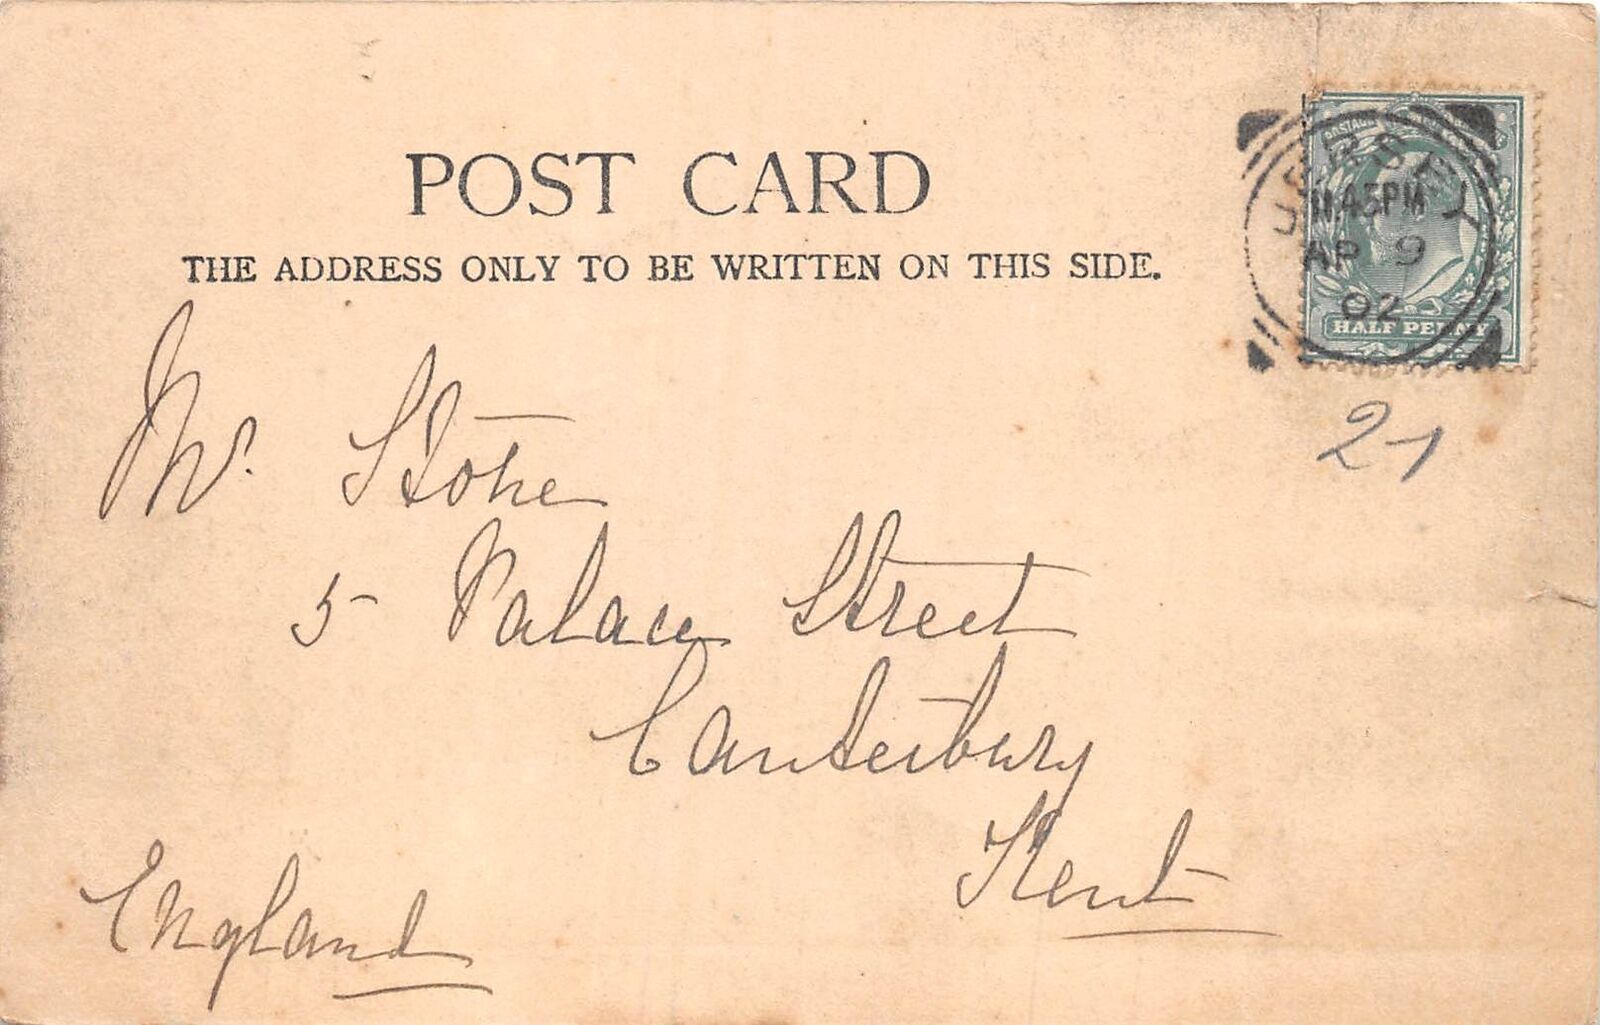 POST CARD
THE ADDRESS ONLY TO BE WRITTEN ON THIS SIDE.
JERSEY
11.45PM
AP 9
02
POSTAGE
HALF PENNY
2-1
Mr. Stone
5 Palace Street
Canterbury
Kent
England